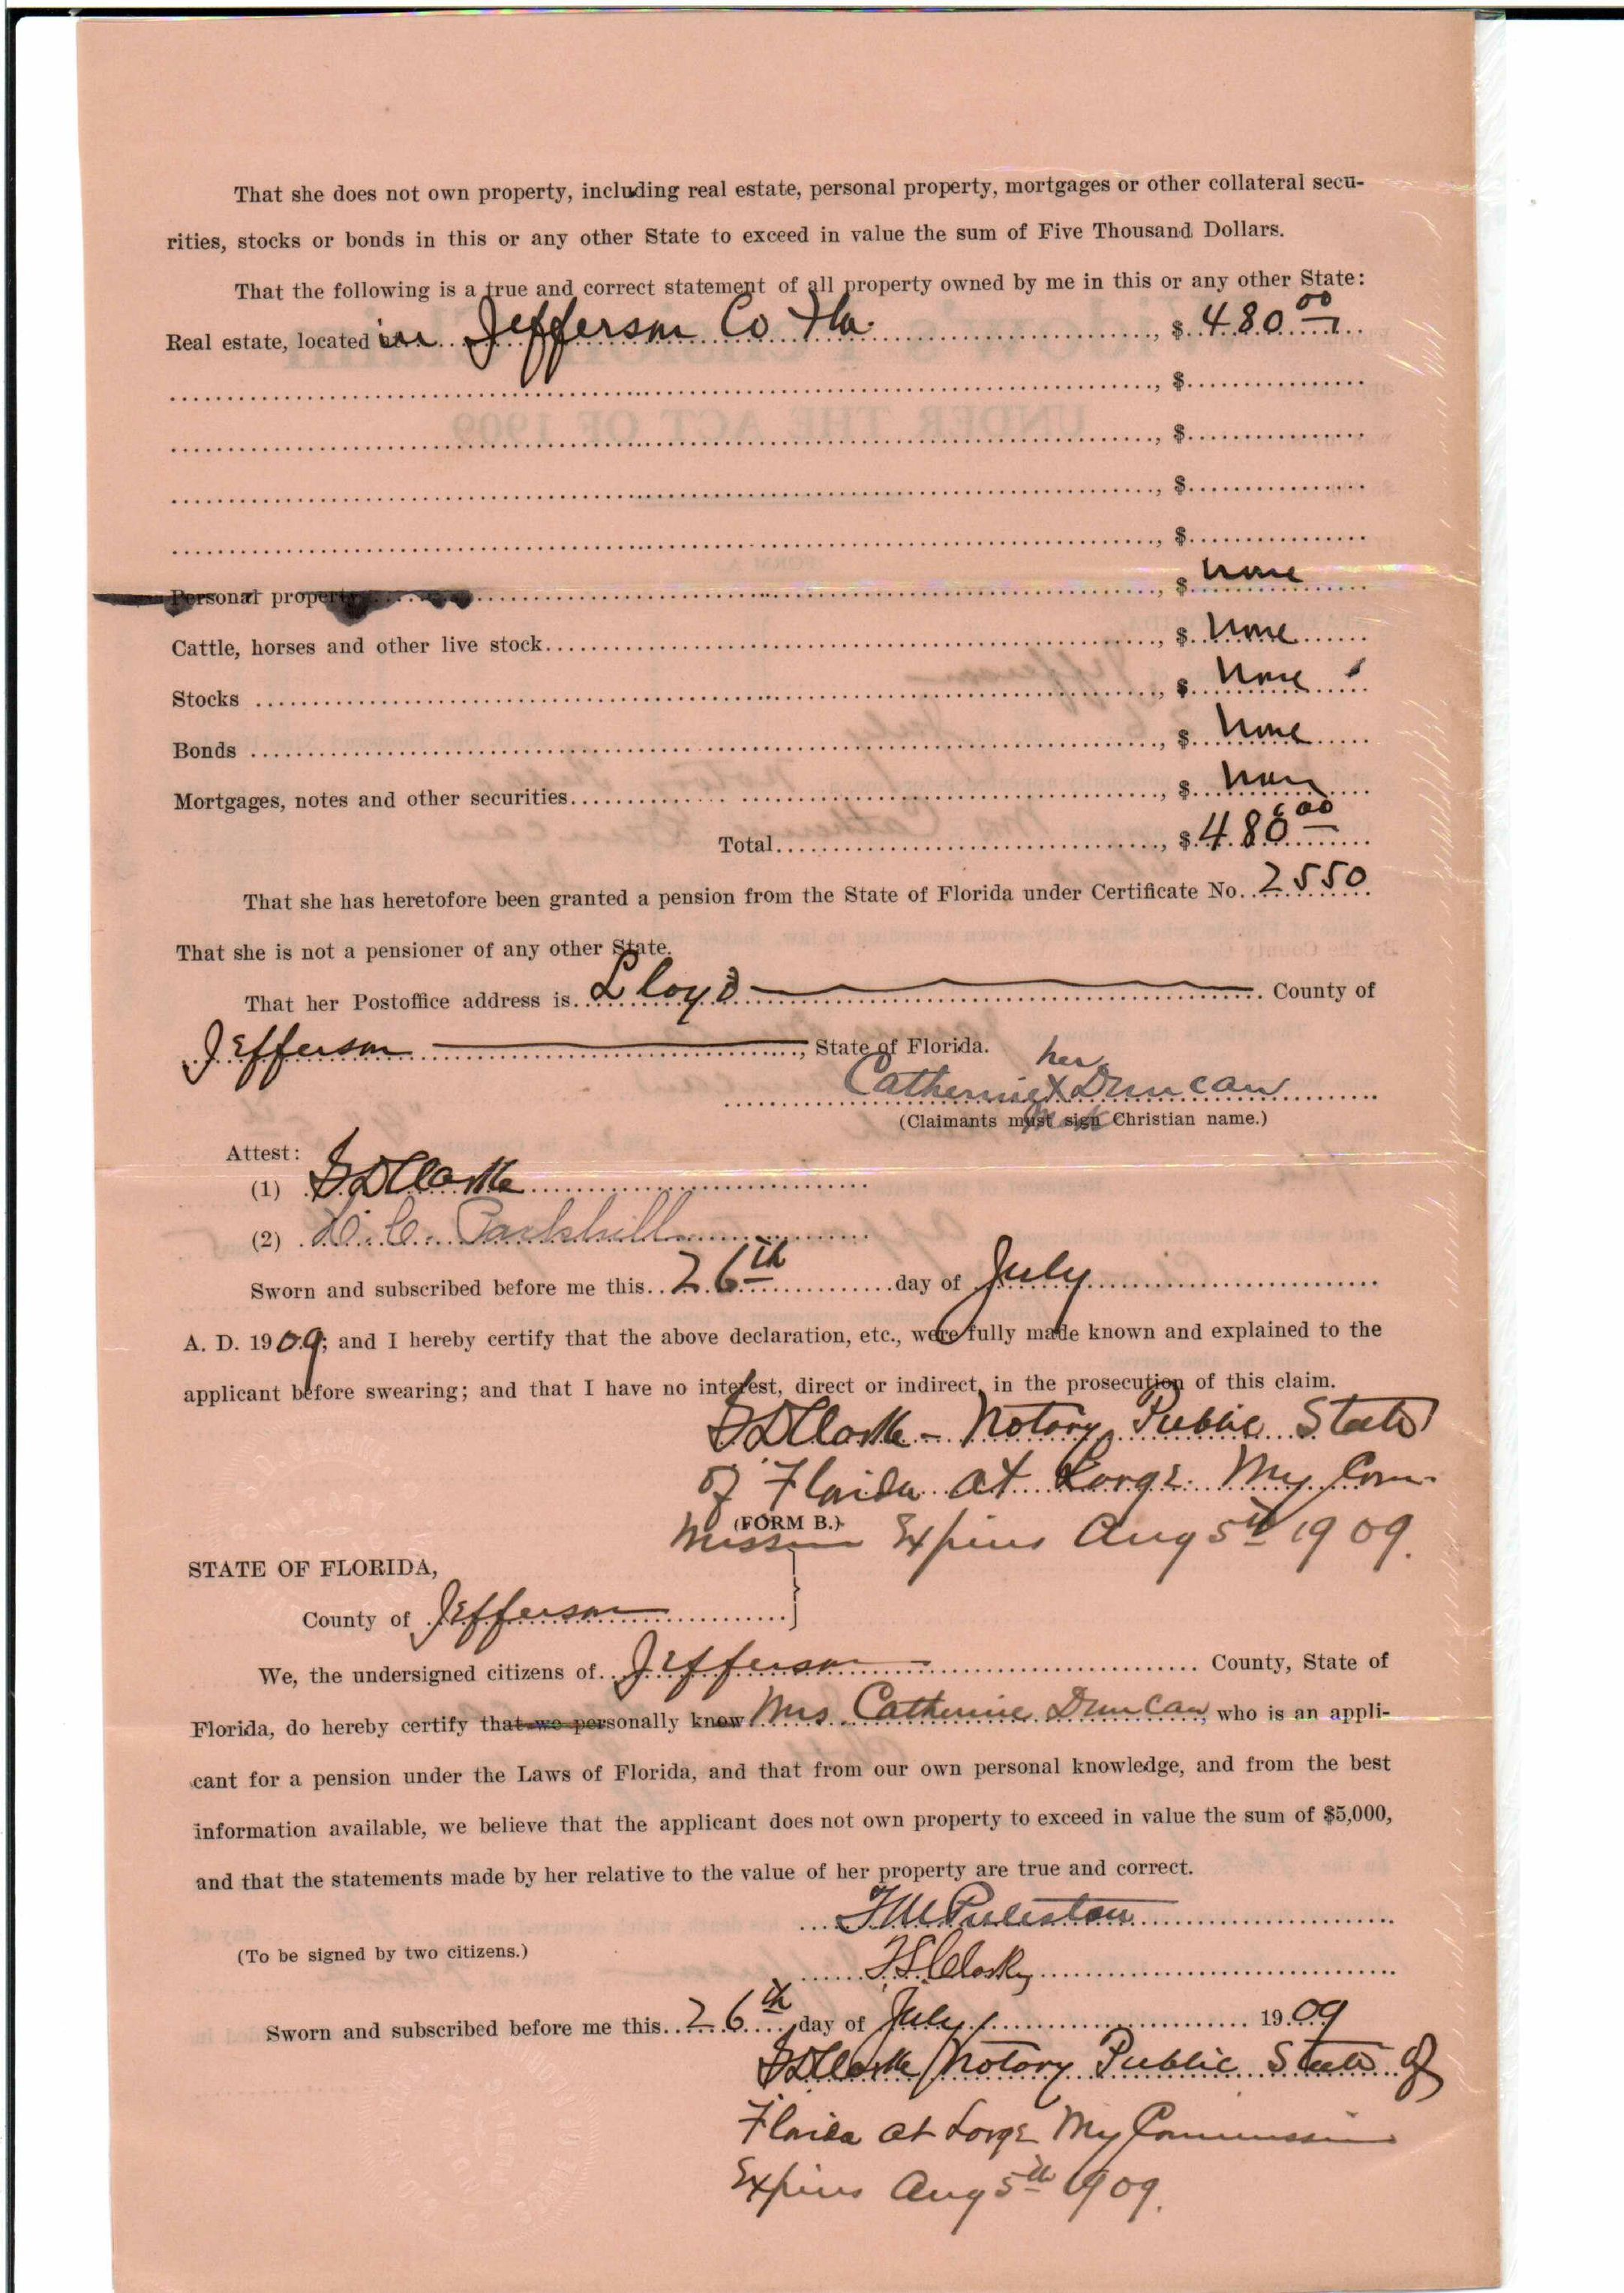 That she does not own property, including real estate, personal property, mortgages or other collateral secu-
rities, stocks or bonds in this or any other State to exceed in value the sum of Five Thousand Dollars.
That the following is a true and correct statement of all property owned by me in this or any other State:
Real estate, located in Jefferson Co Fla. , $ 480 00
, $
, $
, $
, $
Personal property , $ none
Cattle, horses and other live stock , $ None
Stocks , $ None
Bonds , $ None
Mortgages, notes and other securities , $ None
Total , $ 480 00
That she has heretofore been granted a pension from the State of Florida under Certificate No. 2550
That she is not a pensioner of any other State.
That her Postoffice address is Lloyd County of
Jefferson , State of Florida.
her
Catherine X Duncan
mark
(Claimants must sign Christian name.)
Attest:
(1) Clarke
(2) Parkhill
Sworn and subscribed before me this 26th day of July
A. D. 1909; and I hereby certify that the above declaration, etc., were fully made known and explained to the
applicant before swearing; and that I have no interest, direct or indirect, in the prosecution of this claim.
Clarke - Notary Public State
of Florida at Large. My Com-
(FORM B.)
mission Expires Aug 5th 1909.
STATE OF FLORIDA,
County of Jefferson
We, the undersigned citizens of Jefferson County, State of
Florida, do hereby certify that we personally know Mrs Catherine Duncan, who is an appli-
cant for a pension under the Laws of Florida, and that from our own personal knowledge, and from the best
information available, we believe that the applicant does not own property to exceed in value the sum of $5,000,
and that the statements made by her relative to the value of her property are true and correct.
Puleston
(To be signed by two citizens.)
Sworn and subscribed before me this 26th day of July 1909
Clarke Notary Public State of
Florida at Large My Commission
Expires Aug 5th 1909.